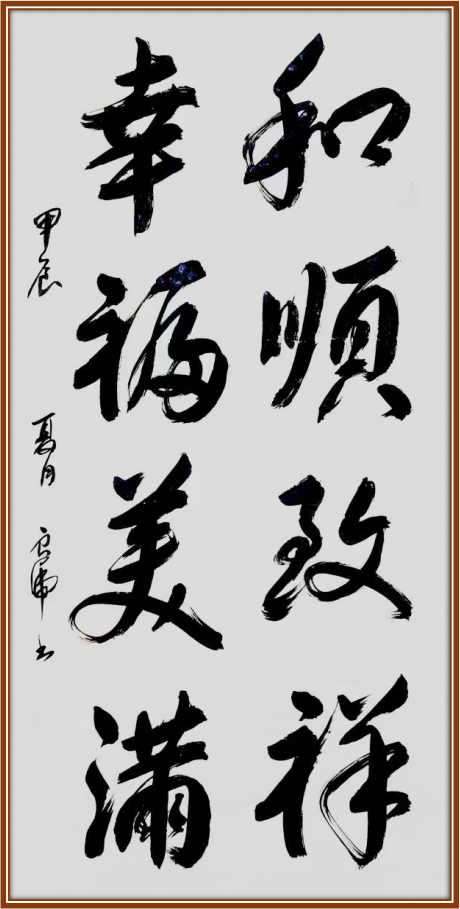 和順致祥
幸福美满
甲辰
夏月
书